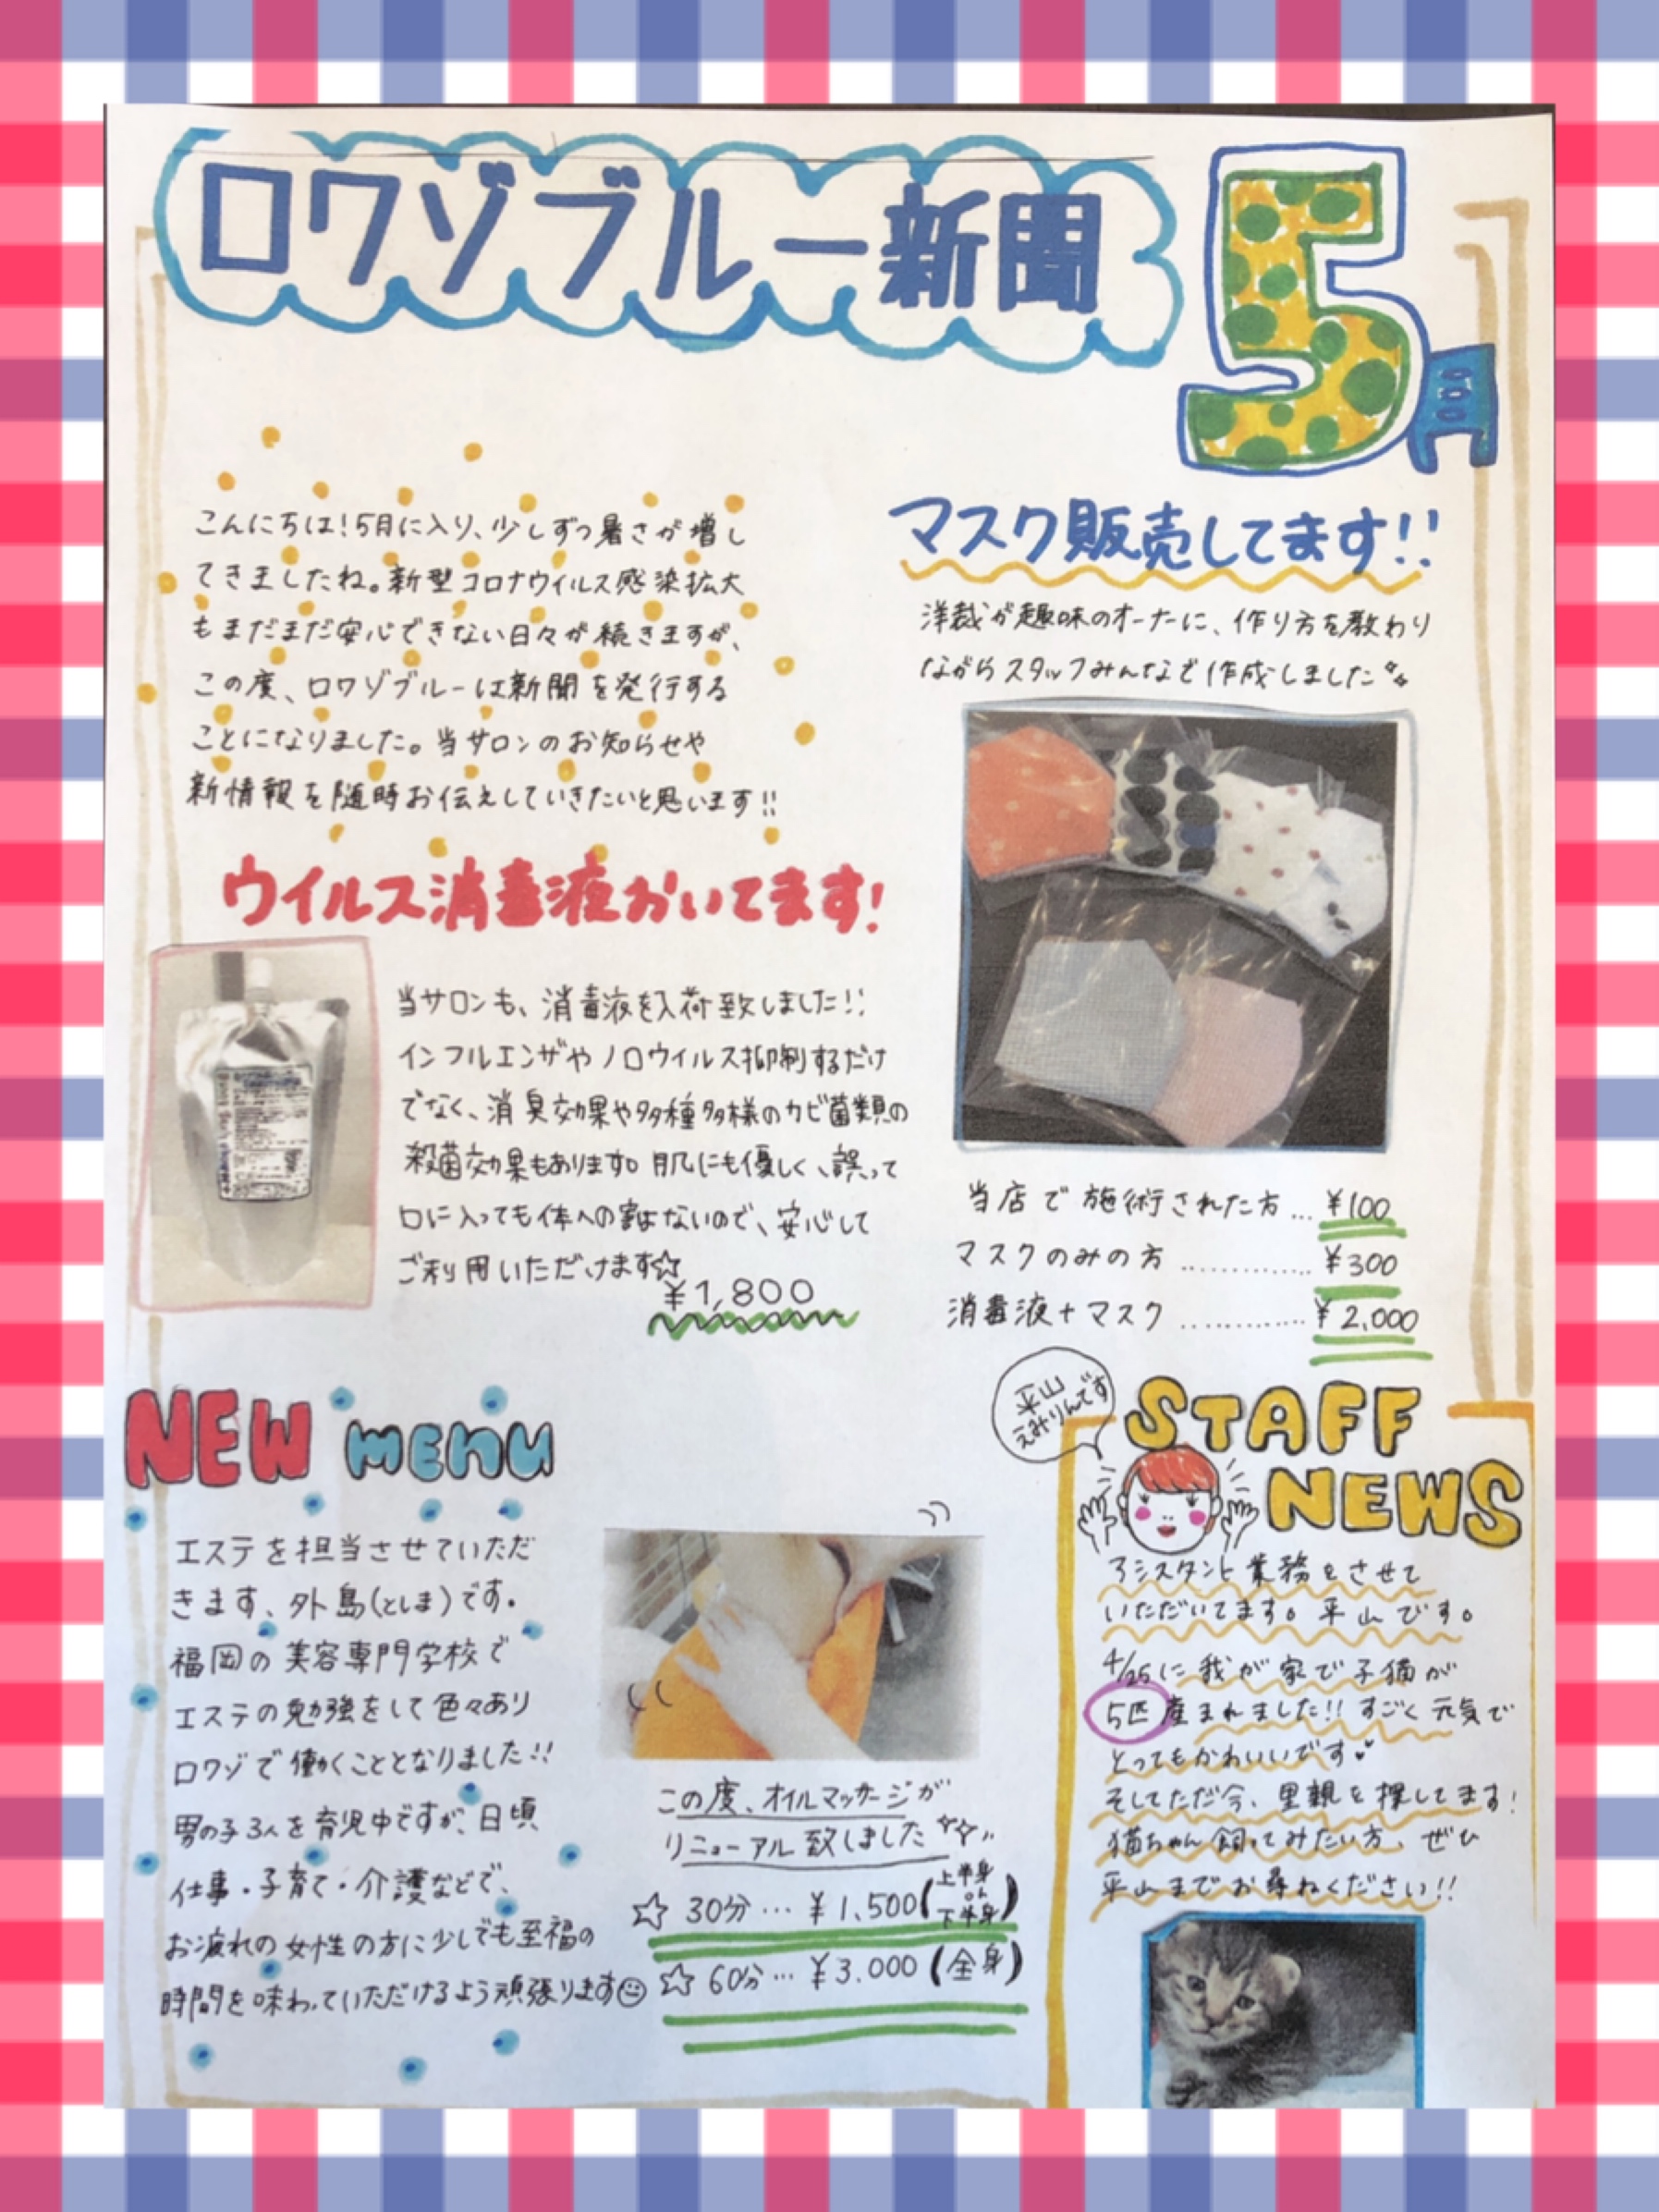 ロワゾブルー新聞
5月
こんにちは！5月に入り、少しずつ暑さが増し
てきましたね。新型コロナウイルス感染拡大
もまだまだ安心できない日々が続きますが、
この度、ロワゾブルーは新聞を発行する
ことになりました。当サロンのお知らせや
新情報を随時お伝えしていきたいと思います!!
ウイルス消毒液おいてます!
当サロンも、消毒液を入荷致しました!!
インフルエンザやノロウイルス抑制するだけ
でなく、消臭効果や多種多様のカビ菌類の
殺菌効果もあります。肌にも優しく、誤って
口に入っても体への害はないので、安心して
ご利用いただけます☆
¥1,800
マスク販売してます!!
洋裁が趣味のオーナーに、作り方を教わり
ながらスタッフみんなで作成しました
当店で施術された方...¥100
マスクのみの方............¥300
消毒液+マスク............¥2,000
NEW MENU
エステを担当させていただ
きます、外島(としま)です。
福岡の美容専門学校で
エステの勉強をして色々あり
ロワゾで働くこととなりました!!
男の子3人を育児中ですが、日頃、
仕事・子育て・介護などで、
お疲れの女性の方に少しでも至福の
時間を味わっていただけるよう頑張ります
この度、オイルマッサージが
リニューアル致しました
☆ 30分…¥1,500(上半身or下半身)
☆ 60分…¥3.000(全身)
平山
えみりんです
STAFF
NEWS
アシスタント業務をさせて
いただいてます。平山です。
4/25に我が家で子猫が
5匹産まれました!!すごく元気で
とってもかわいいです
そしてただ今、里親を探してます!
猫ちゃん飼ってみたい方、ぜひ
平山までお尋ねください!!